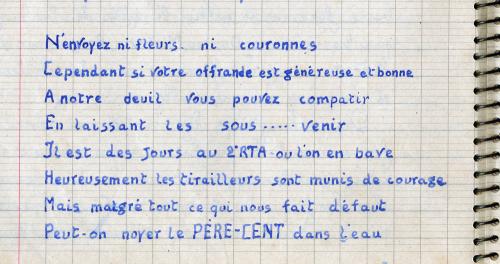 N'envoyez ni fleurs. ni couronnes
Cependant si votre offrande est généreuse et bonne
A notre deuil vous pouvez compatir
En laissant les sous ..... venir
Il est des jours au 2°RTA où l'on en bave
Heureusement les tirailleurs sont munis de courage
Mais malgré tout ce qui nous fait défaut
Peut-on noyer le PÈRE-CENT dans l'eau